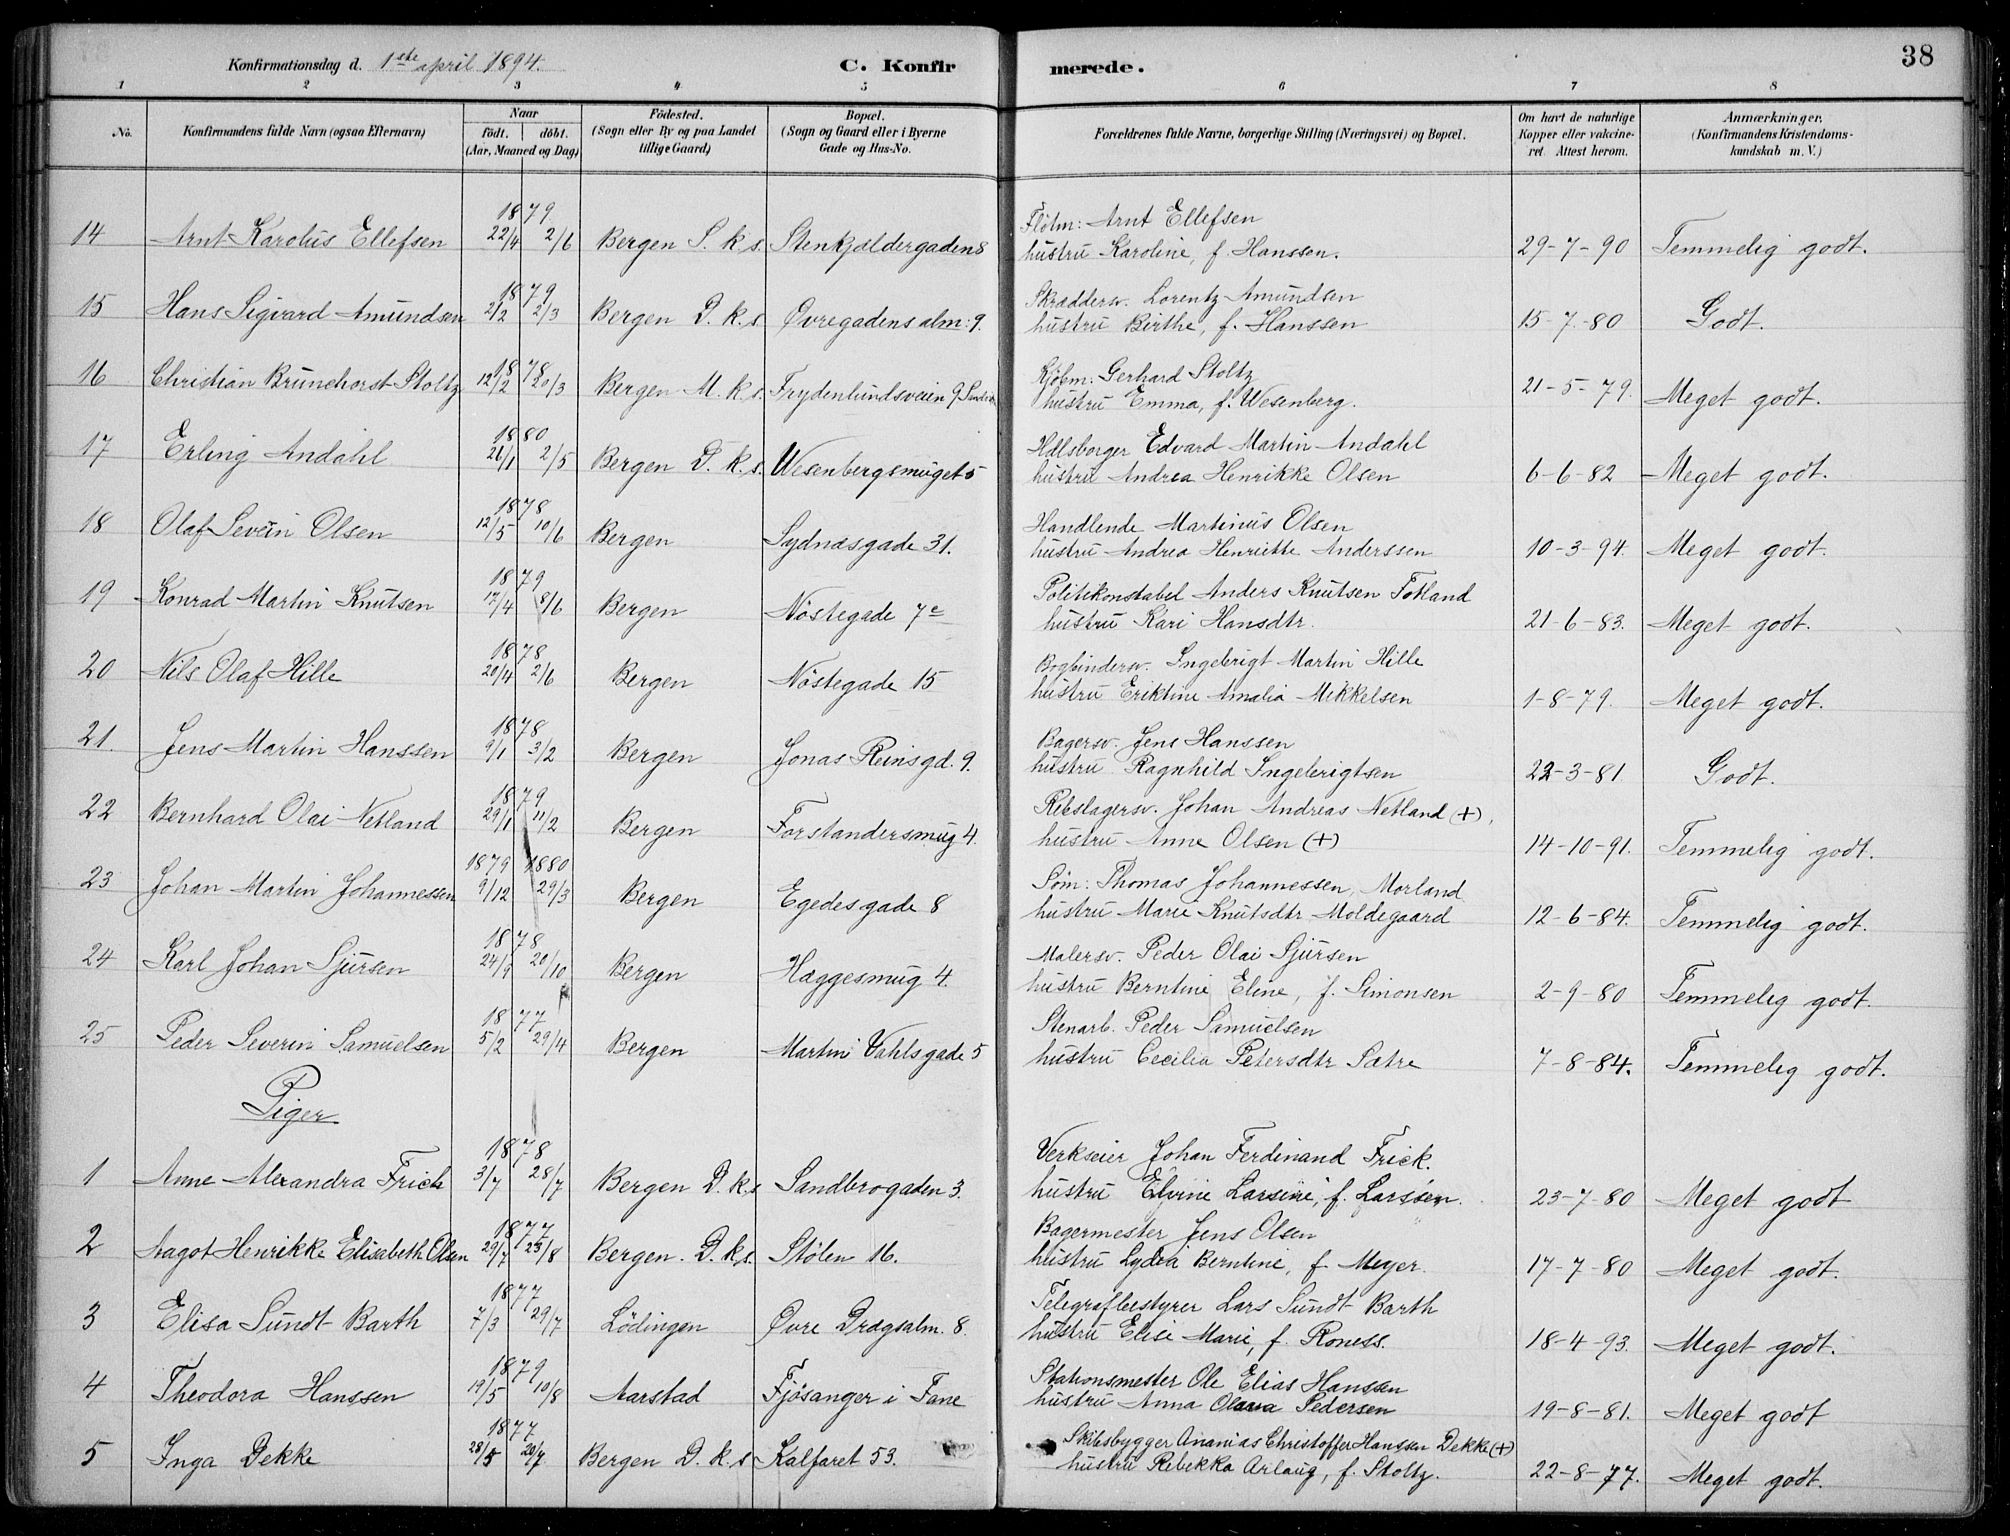 38
Konfirmationsdag d. 1ste april 1894.
C. Konfir merede.
1 2 3 4 5 6 7 8
No.
Konfirmandens fulde Navn (ogsaa Efternavn)
Naar
födt. döbt.
(Aar, Maaned og Dag)
Födested.
(Sogn eller By og paa Landet
tillige Gaard)
Bopæl.
(Sogn og Gaard eller i Byerne
Gade og Hus-No.
Forældrenes fulde Navne, borgerlige Stilling (Næringsvei) og Bopæl.
Om havt de naturlige
Kopper eller vakcine-
ret. Attest herom.
Anmærkninger.
(Konfirmandens Kristendoms-
kundskab m. V.)
1879
Fløtm: Arnt Ellefsen
14 Arnt Karolus Ellefsen 22/4 2/6 Bergen S. k. s. Stenkjældergaden 8 hustru Karoline, f. Hanssen. 29-7-90 Temmelig godt.
1879
Skrædders. Lorentz Amundsen
15 Hans Sigvard Amundsen 2/2 2/3 Bergen D. k. s. Øvregadens alm: 9. hustru Birthe, f. Hanssen 15-7-80 Godt.
1878
Kjöbm: Gerhard Stoltz
16 Christian Brunchorst Stoltz 12/2 20/3 Bergen M. k. s. Frydenlundsveien 9 hustru Emma, f. Wesenberg. 21-5-79. Meget godt.
1880
Hdlsborger Edvard Martin Andahl
17 Erling Andahl 26/1 2/5 Bergen D. k. s. Wesenbergsmuget 5 hustru Andrea Henrikke Olsen 6-6-82 Meget godt.
1878
Handlende Martinus Olsen
18 Olaf Severin Olsen 12/5 10/6 Bergen Sydnæsgade 31. hustru Andrea Henriette Anderssen 10-3-94. Meget godt.
1879
Politikonstabel Anders Knutsen Fotland
19 Konrad Martin Knutsen 17/4 8/6 Bergen Nöstegade 7c hustru Kari Hansdtr. 21-6-83. Meget godt.
1878
Bogbindersv. Ingebrigt Martin Hille
20 Nils Olaf Hille 20/4 2/6 Bergen Nöstegade 15 hustru Eriktine Amalia Mikkelsen 1-8-79. Meget godt.
1878
Bagersv. Jens Hanssen
21. Jens Martin Hanssen 9/1 3/2 Bergen Jonas Reinsgd. 9. hustru Ragnhild Ingebrigtsen 22-3-81 Godt.
1879
Rebslagersv. Johan Andreas Netland (+),
22 Bernhard Olai Netland 29/1 11/2 Bergen Forstandersmug 4. hustru Anne Olsen (+) 14-10-91. Temmelig godt.
1879 1880
Söm: Thomas Johannessen, Morland
23 Johan Martin Johannessen 9/12 29/3 Bergen Egedesgade 8 hustru Marie Knutsdtr Moldegaard 12-6-84. Temmelig godt.
1878
Malersv. Peder Olai Sjursen
24 Karl Johan Sjursen 24/9 20/10 Bergen Hæggesmug 4. hustru Berntine Eline, f. Simonsen 2-9-80 Temmelig godt.
1877
Stenarb. Peder Samuelsen
25 Peder Severin Samuelsen 5/2 29/4 Bergen Martin Vahlsgade 5 hustru Cecilia Petersdtr Sætre 7-8-84. Temmelig godt.
Piger
1878
Verkseier Johan Ferdinand Frick.
1 Anne Alexandra Frich 3/7 28/7 Bergen D. k. s Sandbrogaden 3. hustru Elvine Larsine, f. Larssen. 23-7-80 Meget godt
1877
Bagermester Jens Olsen
2 Aagot Henrikke Elisabeth Olsen 29/7 23/8 Bergen. D. k. s. Stølen 16. hustru Lydia Berntine, f. Meyer. 17-7-80 Meget godt.
1877
Telegrafbestyrer Lars Sundt Barth
3 Elisa Sundt Barth 7/3 29/7 Lödingen Øvre Dragsalm. 8. hustru Elise Marie, f. Roness. 18-4-93. Meget godt.
1879
Stationsmester Ole Elias Hanssen
4 Theodora Hanssen 19/5 10/8 Aarstad Fjösanger i Fane hustru Anna Olava Pedersen 19-8-81. Meget godt
1877
Skibsbygger Ananias Christoffer Hanssen Dekke (+)
5 Inga Dekke 28/5 20/7 Bergen D. k. s Kalfaret 53. hustru Rebekka Arlaug, f. Stoltz. 22-8-77. Meget godt.